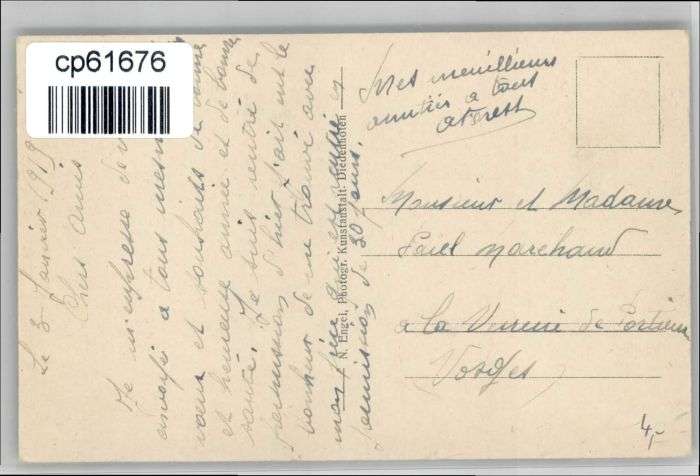 cp61676
Le 3 Janvier 1919
Chers amis
Je m'empresse de
à tous mes
vœux et souhaits de bonne
et heureuse année et de bonne
santé. Je suis rentré de
permission d'hier j'ai eut le
bonheur de me trouvé avec
mon
permission de 30 jours.
N. Engel, Photogr. Kunstanstalt - Diedenhofen
Mes meuillieurs
amitiés a tous
Monsieur et Madame
Paul Marchand
a la Verrerie de Portieux
Vosges
4,-